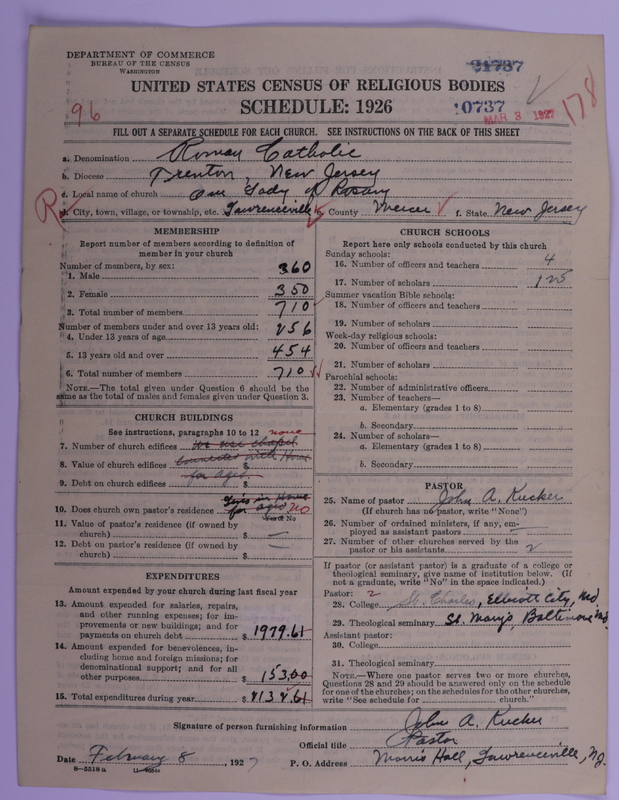 DEPARTMENT OF COMMERCE
BUREAU OF THE CENSUS
WASHINGTON
21737
UNITED STATES CENSUS OF RELIGIOUS BODIES
SCHEDULE: 1926
96
10737
MAR 3 1927
178
FILL OUT A SEPARATE SCHEDULE FOR EACH CHURCH. SEE INSTRUCTIONS ON THE BACK OF THIS SHEET
a. Denomination Roman Catholic
b. Diocese Trenton, New Jersey
c. Local name of church Our Lady of Rosary
R
d. City, town, village, or township, etc. Lawrenceville e. County Mercer f. State New Jersey
MEMBERSHIP
Report number of members according to definition of
member in your church
Number of members, by sex:
1. Male 360
2. Female 350
3. Total number of members 710
Number of members under and over 13 years old:
4. Under 13 years of age 256
5. 13 years old and over 454
6. Total number of members 710
NOTE.—The total given under Question 6 should be the
same as the total of males and females given under Question 3.
CHURCH BUILDINGS
See instructions, paragraphs 10 to 12 none
7. Number of church edifices We use chapel
8. Value of church edifices $ connected with Home
9. Debt on church edifices $ for aged
10. Does church own pastor's residence? lives in Home for aged No
Yes or No
11. Value of pastor's residence (if owned by
church) $ —
12. Debt on pastor's residence (if owned by
church) $ —
EXPENDITURES
Amount expended by your church during last fiscal year
13. Amount expended for salaries, repairs,
and other running expenses; for im-
provements or new buildings; and for
payments on church debt $ 1979.61
14. Amount expended for benevolences, in-
cluding home and foreign missions; for
denominational support; and for all
other purposes $ 153.00
15. Total expenditures during year $ 2132.61
CHURCH SCHOOLS
Report here only schools conducted by this church
Sunday schools:
16. Number of officers and teachers 4
17. Number of scholars 125
Summer vacation Bible schools:
18. Number of officers and teachers
19. Number of scholars
Week-day religious schools:
20. Number of officers and teachers
21. Number of scholars
Parochial schools:
22. Number of administrative officers
23. Number of teachers—
a. Elementary (grades 1 to 8)
b. Secondary
24. Number of scholars—
a. Elementary (grades 1 to 8)
b. Secondary
PASTOR
25. Name of pastor John A. Kucker
(If church has no pastor, write "None")
26. Number of ordained ministers, if any, em-
ployed as assistant pastors —
27. Number of other churches served by the
pastor or his assistants 2
If pastor (or assistant pastor) is a graduate of a college or
theological seminary, give name of institution below. (If
not a graduate, write "No" in the space indicated.)
Pastor: 2
28. College St. Charles, Ellicott City, Md
29. Theological seminary St. Mary's, Baltimore Md.
Assistant pastor:
30. College
31. Theological seminary
NOTE.—Where one pastor serves two or more churches,
Questions 28 and 29 should be answered only on the schedule
for one of the churches; on the schedules for the other churches,
write "See schedule for church."
Signature of person furnishing information John A. Kucker
Official title Pastor
Date February 8, 1927 P. O. Address Morris Hall, Lawrenceville, N.J.
8—5518a